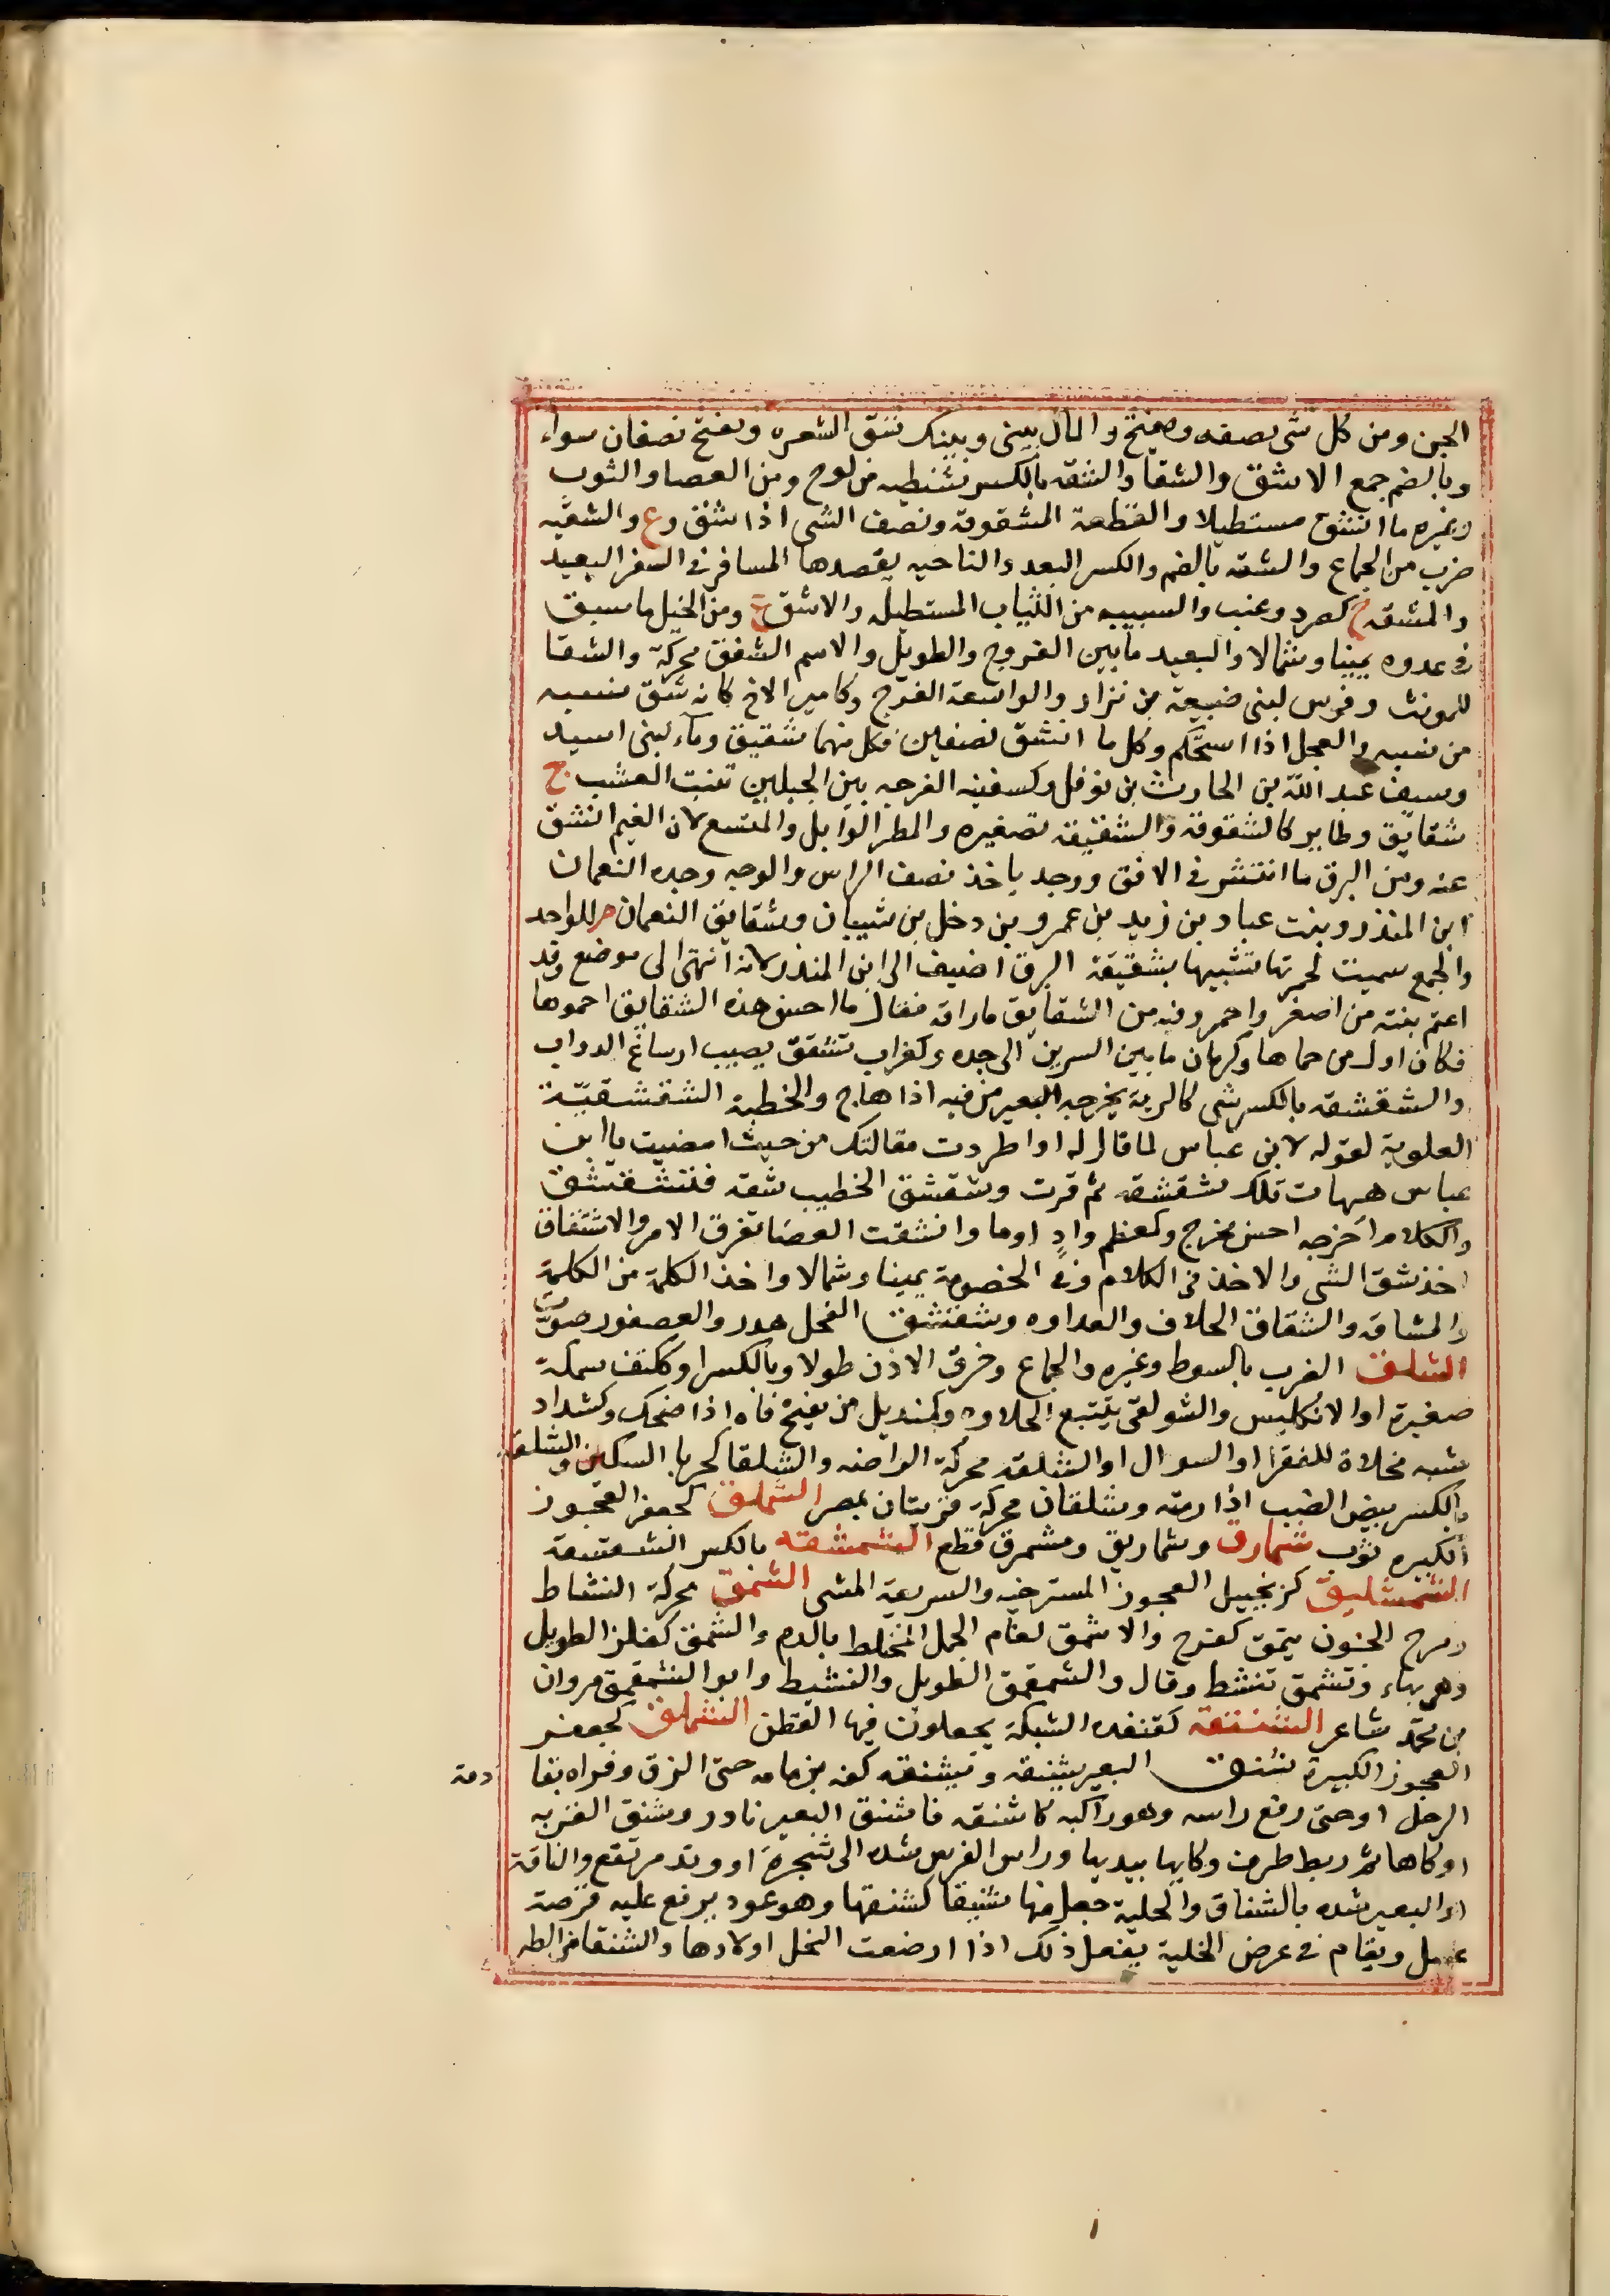 الجن ومن كل شى نصفه ويفتح والمال بينى وبينك شق الشعره ويفتح نصفان سواء
وبالضم جمع الاشق والشقا والشقه بالكسر شظيه من لوح ومن العصا والثوب
وغيره ما انشق مستطيلا والقطعة المشقوقة ونصف الشى اذا شق وع والشقيه
ضرب من الجماع والشقه بالضم والكسر البعد والناحيه يقصدها المسافر فى السفر البعيد
والمشقه ج كصرد وعنب والسبيبه من الثياب المستطيله والاشق ع ومن الخيل ما سبق
فى عدوه يمينا وشمالا والبعيد ما بين الفروج والطويل والاسم الشقق محركة والشقا
للمونث وفرس لبنى ضبيعة بن نزار والواسعة الفرج وكامير الاخ كانه شق نسبه
من نسبه والعجل اذا استحكم وكل ما انشق نصفين فكل منهما شقيق وماء لبنى اسيد
وسيف عبد الله بن الحارث بن نوفل وكسفينه الفرجه بين الجبلين تنبت العشب ج
شقايق وطاير كالشقوقة والشقيقه تصغيره والمطر الوابل والمتسع لان الغيم انشق
عنه ومن البرق ما انتشر فى الافق ووجد ياخذ نصف الراس والوجه وجده النعمان
ابن المنذر وبنت عباد بن زيد بن عمرو بن دخل بن شيبان وشقايق النعمان م للواحد
والجمع سميت لحمرتها تشبيها بشقيقة البرق اضيف الى ابن المنذر لانه انتهى الى موضع وقد
اعتم بنته من اصفر واحمر وفيه من الشقايق ما راقه فقال ما احسن هذه الشقايق احموها
فكان اول من حماها وكرمان ما بين السرين الى جده وكغراب تشقق يصيب ارساغ الدواب
والشقشقه بالكسر شى كالرية يخرجه البعير من فيه اذا هاج والخطبة الشقشقيّة
العلوية لقوله لابن عباس لما قال له او اطردت مقالتك من حيث امضيت يا ابن
عباس هيهات تلك شقشقه ثم قرت وشقشق الخطيب شقه فتشقشق
والكلام اخرجه احسن مخرج وكمعظم وادٍ او ما وانشقت العصا تفرق الامر والاشتقاق
اخذ شق الشى والاخذ فى الكلام وفى الخصومة يمينا وشمالا واخذ الكلمة من الكلمة
والمشاقه والشقاق الخلاف والعداوه وشقشق الفحل هدر والعصفور صوت
الشلق الضرب بالسوط وغيره والجماع وخرق الاذن طولا وبالكسر او ككتف سمكة
صغيرة او الانكليس والشولقى يتتبع الحلاوه وكمنديل من يفتح فاه اذا ضحك وكشداد
شبه مخلاة للفقرا او السوال او الشلقه محركة الراضه والشلقا كحربا السكين والشلقه
بالكسر بيض الضب اذا رمته وشلقان محركة قريتان بمصر الشملق كجعفر العجوز
الكبيره ثوب شمارق وشماريق ومشمرق قطع الشمشقه بالكسر الشقشقة
الشمشليق كزنجبيل العجوز المسترخيه والسريعة المشى الشمق محركة النشاط
ومرح الجنون يتمق كفرح والاشمق لغام الجمل المختلط بالدم والشمق كفلز الطويل
وهى بهاء وتشمق تنشط وقال والشمقمق الطويل والنشيط وابو الشمقمق مروان
بن محمد شاعر الشنتقة كقنفده الشبكة يجعلون فيها القطن الشملق كجعفر
العجوز الكبيرة شنق البعير يشنقه ويشنقه كفه بزمامه حتى الزق ذفراه بقا
دمة
الرحل او حتى رفع راسه وهو راكبه كاشنقه فاشنق البعير نادر وشنق القربه
اوكاها ثم ربط طرف وكايها بيديها وراس الفرس شده الى شجرة او وتد مرتفع والناقة
او البعير شده بالشناق والخلية جعل فيها شنيقا كشنقها وهو عود يرفع عليه قرصة
عسل ويقام فى عرض الخلية يفعل ذلك اذا ارضعت النحل اولادها والشنقا من الطير